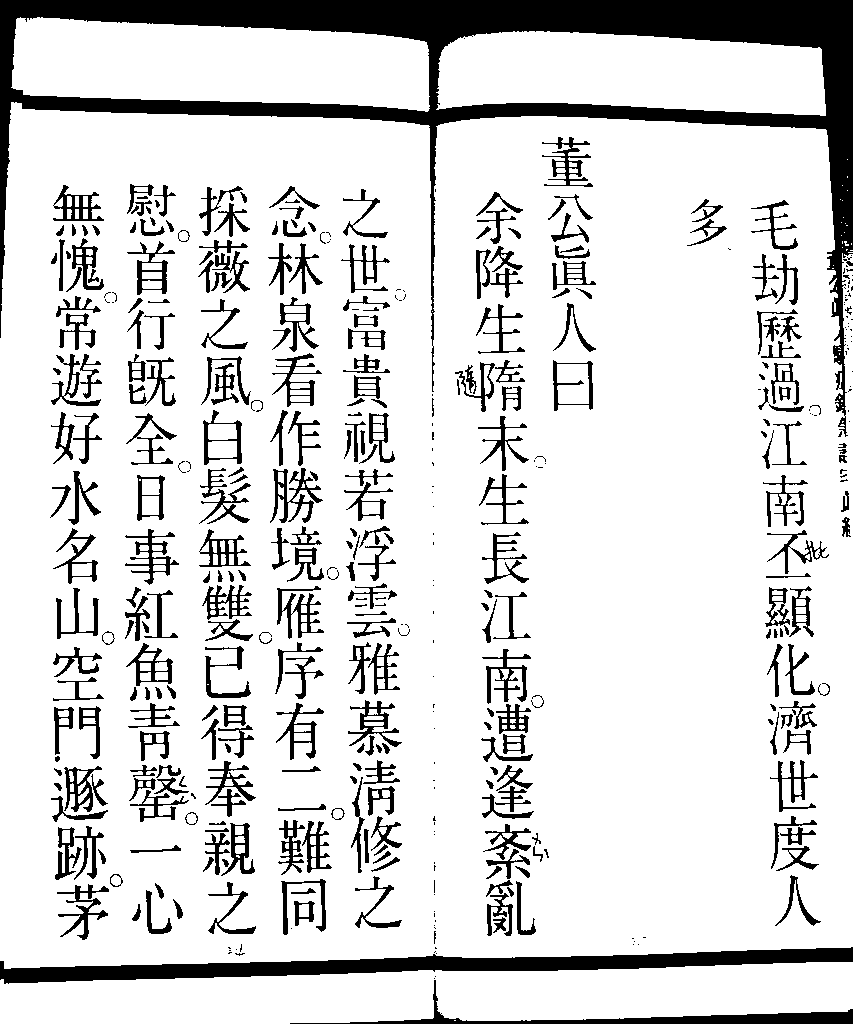 毛劫歷過。江南丕顯化。濟世度人
多
董公眞人曰
余降生隋末。生長江南。遭逢紊亂
之世。富貴視若浮雲。雅慕淸修之
念。林泉看作勝境。雁序有二。難同
採薇之風。白髮無雙。已得奉親之
慰。首行旣全。日事紅魚靑罄。一心
無愧。常遊好水名山。空門遯跡。茅
隨